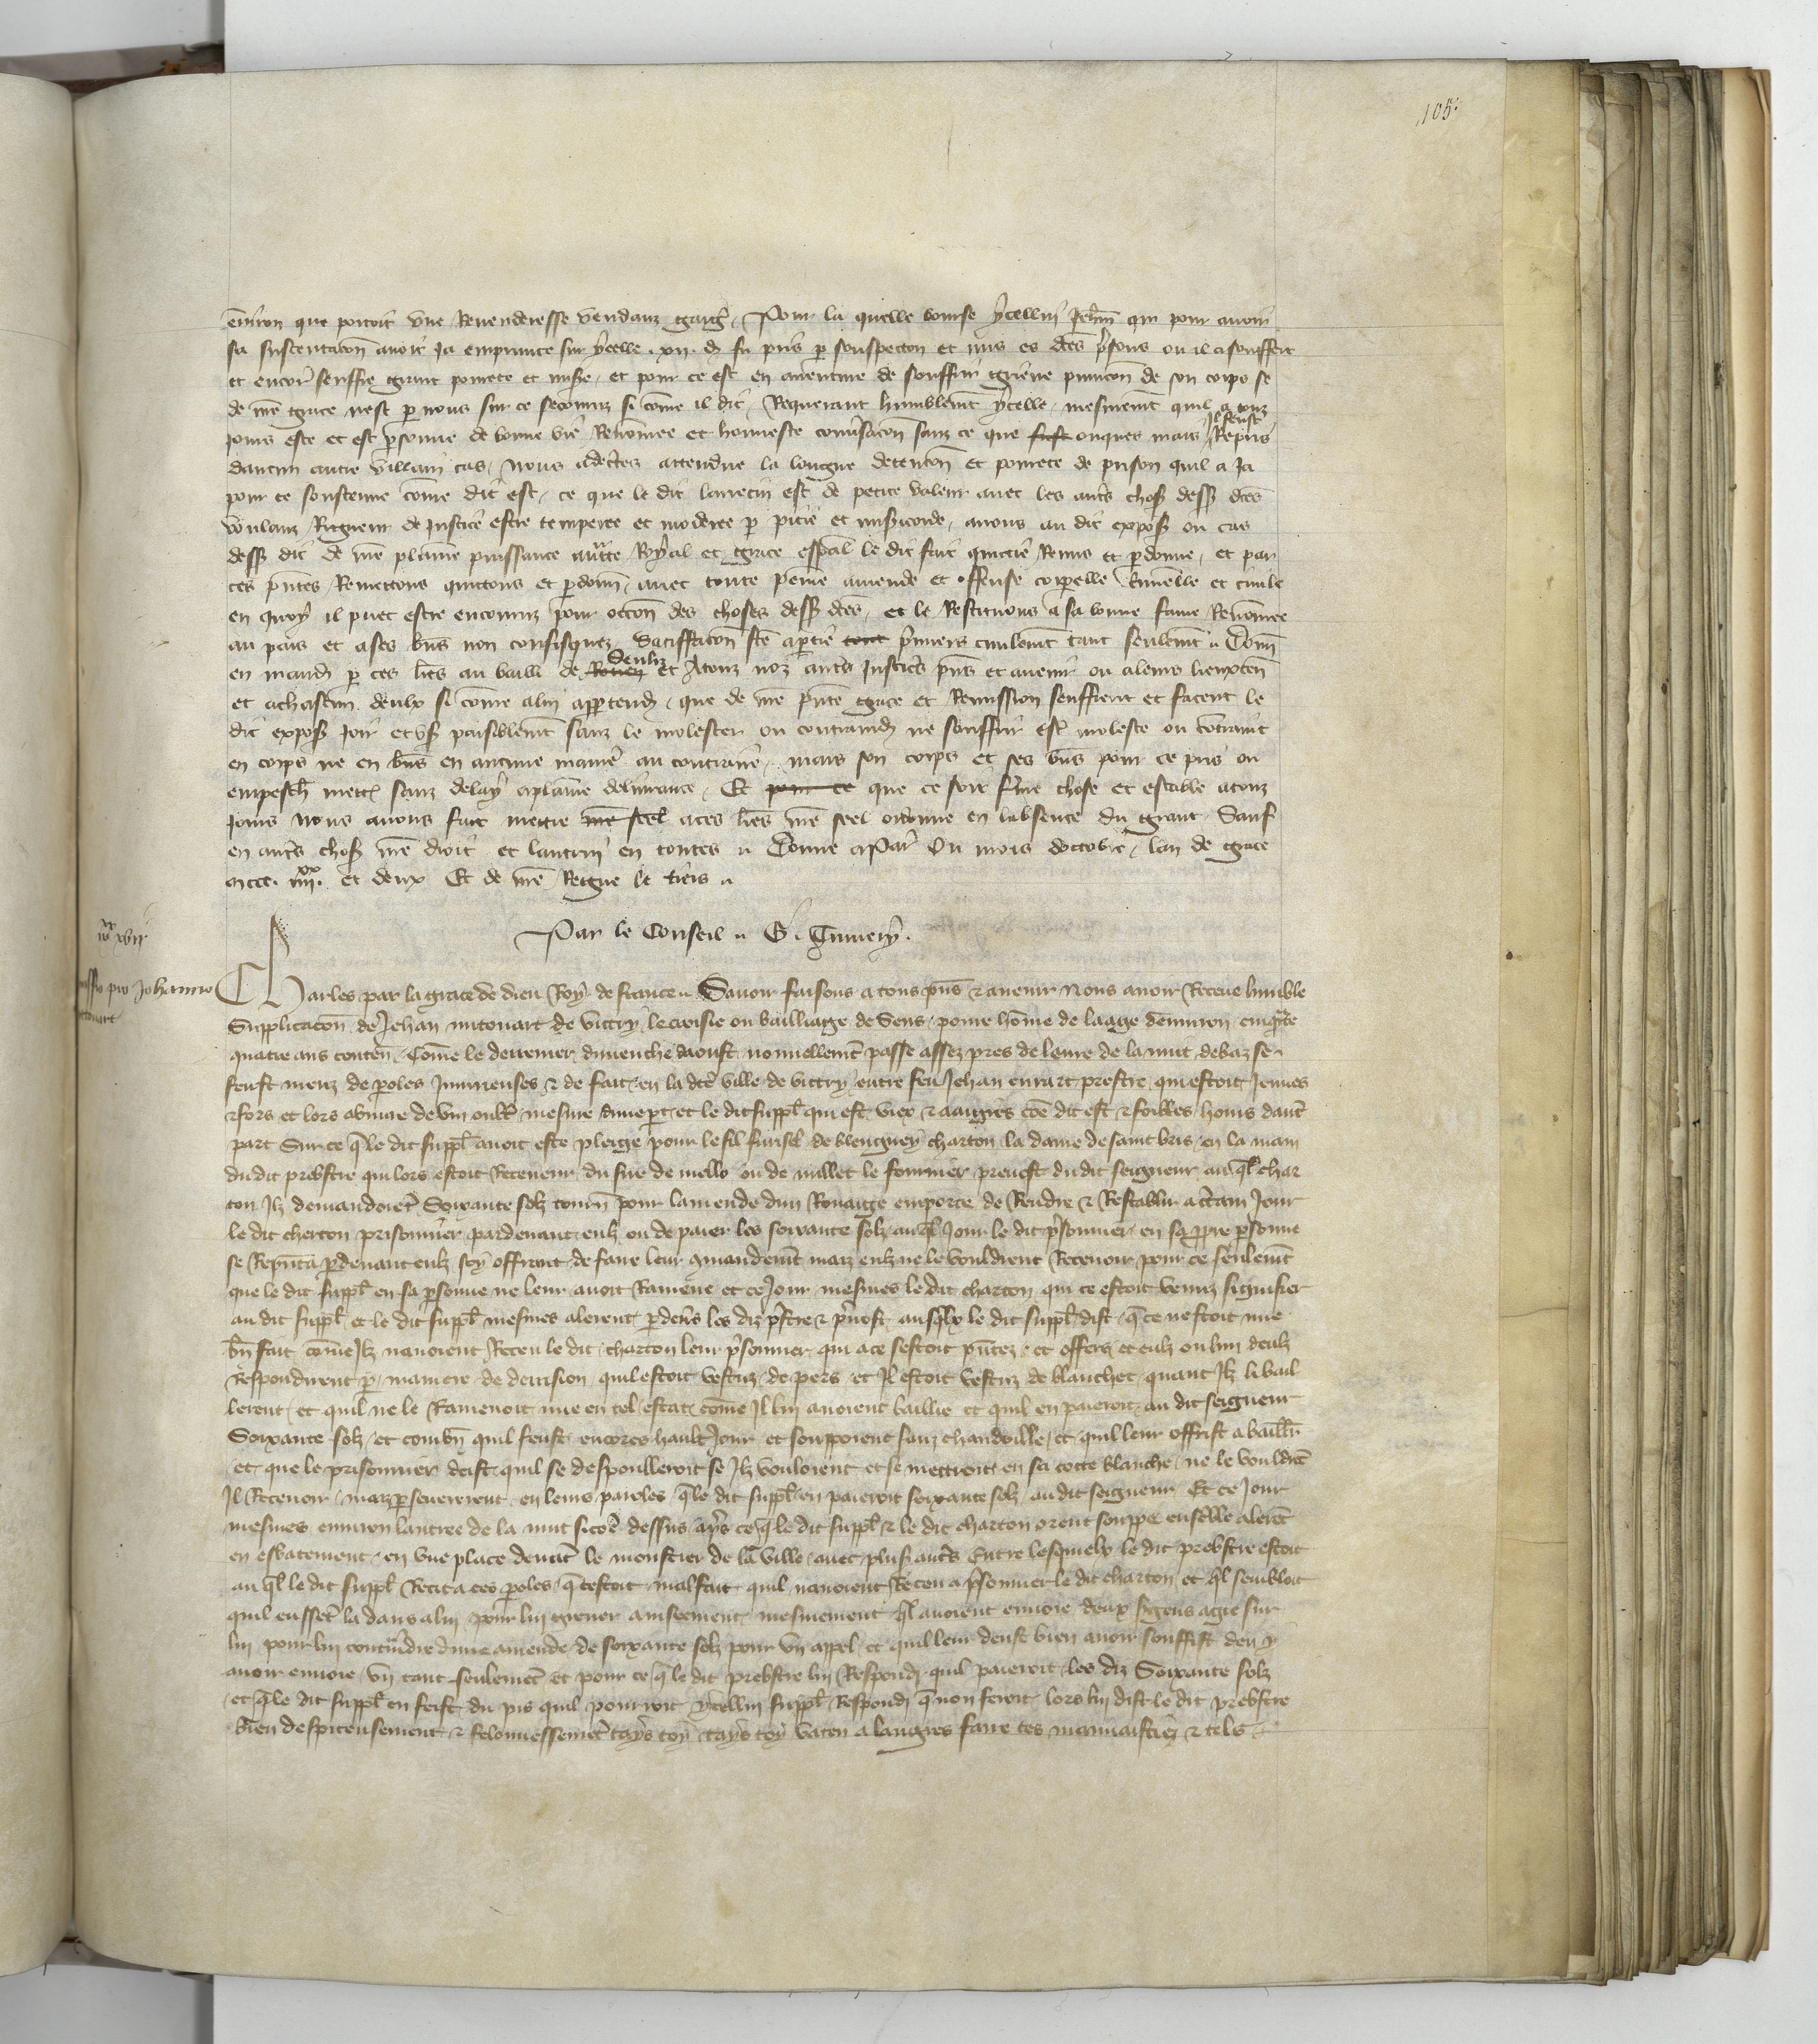 105.
environ que portoit une Revenderesse vendanz Pour la quelle bourse ycellui Jehan qui pour avoir
sa sustentacon avoit ja emprunte sur ycelle . xii . d fu pris p souspecon et mis es dces prisons ou il a souffert
et encor seuffre grant povrete et misere et pour ce est en aventure de souffrir grieve punicon de son corps se
de nre grace nest p nous sur ce secouruz si come il dit / Requerant humblemt ycelle / mesmemt quil a touz
jours este et est psonne de bonne vie Renomee et honneste convsacon sanz ce que fust onques mais il feust Repris
daucun autre villain cas / Nous adctes attendue la longue detencon et povrete de prison quil a ja
pour ce soustenue come dit est / ce que le dit larrecin est de petite valeur avec les autres choses dess dces
voulanz Rigueur de justice estre temperee et moderee p pitie et misicorde / avons au dit expos ou cas
dess dit de nre plaine puissance auctte Royal et grace espal le dit fait quictie Remis et pdonne / et par
ces pntes Remettons quittons et pdonn / avec toute peine amende et offense corporelle criminelle et civile
en quoy il puet estre encouruz pour occon des choses dess dces / et le Restituons a sa bonne fame Renomee
au pais et a ses biens non confisquez / Satisffacon fce a ptie tout pmiers civilemt tant seulemt Donn
en mand p ces lres au bailli de Rouen Senliz et A touz noz autres justices pns et avenir ou a leurs lieuxten
et a chascun deulx si come a lui appartend / que de nre pnte grace et Remission seuffrent et facent le
dit expos joir et us paisiblemt sanz le molester ou contraind ne souffrir estre moleste ou contraint
en corps ne en biens en aucune maniere au contraire / mais son corps et ses biens pour ce pris ou
empesch mett sanz delay a plaine delivrance / Et pour ce que ce soit ferme chose et estable a touz
jours nous avons fait mettre nre seel a ces lres nre seel ordonne en labsence du grant / Sauf
en autres choses nre droit et lautrui en toutes Donne a Par Ou mois doctobre / lan de grace
m ccc . iiii xx . et deux Et de nre Regne le tiers
Par le Conseil G . Tumery .
iiixx xvii
Remissio pro Johanne
mitouart
Charles par la grace de dieu Roy de france Savoir faisons a tous pns & avenir Nous avoir Receue humble
Supplicacon de Jehan mitouart de vittry le croisie ou bailliage de Sens / povre home de laage denviron cinqte
quatre ans conten / Come le derrenier dimenche daoust nouvellemt passe assez pres de leure de la nuit debaz se
feust meuz de proles jnjurieuses & de fait en la dce ville de vittry entre feu Jehan evrart prestre qui estoit jeunes
& fors et lors abitue de vin oultre mesure dune pt et le dit suppl qui est viex & aagies coe dit est & foibles homs dautre
part Sur ce qle dit suppl avoit este pleige pour le fil de blengney charton la dame de saint bris / en la main
du dit prebstre qui lors estoit Receveur du sire de mello ou de millet le fournier prevost du dit seigneur au ql char
ton Ilz demandoient Soixante solz tourn pour lamende dun Rouaige emporte de Rendre & Restablir a ctain jour
le dit cherton prisonnier pardevant eulx ou de paier les soixante solz / au ql jour le dit prisonnier en sa ppre psonne
se Representa pdevant eulz soy offrant de faire leur Mandemt maiz eulz ne le vouldrent Recevoir pour ce seulemt
que le dit suppl en sa psonne ne leur avoit Ramene et ce jour mesmes le dit charton qui ce estoit venuz signifier
au dit suppl et le dit suppl mesmes alerent pdevs les diz prestre & prevost / ausqlx le dit suppl dist q ce nestoit mie
bn fait come Ilz navoient Receu le dit charton leur prisonnier qui a ce sestoit pntez / et offers et eulz ou lun deulz
Respondirent p maniere de derrision quil estoit vestuz de pers et Il estoit vestuz de blanchet quant Ilz li bail
lerent / et quil ne le Ramenoit mie en tel estat come Il lui avoient baillie et quil en paieroit au dit seigneur
Soixante solz / et combn quil feust encores hault jour et soupoient sanz chandoille / et quil leur offrist a baillr
et que le prisonnier deist quil se despoulleroit se Ilz vouloient et se mettroit en sa cotte blanche / ne le vouldret
Il Recevoir / maiz pseverent en leurs paroles qle dit suppl en paieroit soixante solz au dit seigneur Et ce jour
mesmes environ lantree de la nuit sicoe dessus aps ce q le dit suppl & le dit charton orent souppe ensemble alerent
en esbatement en une place devant le monstier de la ville / avec plus autres Entre lesquelx le dit prebstre estoit
au ql le dit suppl Recita ces proles q cestoit mal fait quil navoient Receu a prisonnier le dit charton et ql sembloit
quil eussent la dans a lui pour lui grever ainsement / mesmement ql avoient envoie deux sgens agie sur
lui pour lui contraindre dune amende de soixante solz pour un appel et quil leur deust bien avoir souffist den y
avoir envoie un tant seulement et pour ce q le dit prebstre lui Respondi quil paieroit les diz Soixante solz
et qle dit suppl en feist du pis quil pourroit ycellui suppl Respondi q non feroit lors lui dist le dit prebstre
bien despiteusement & felonnessement tays toy tays toy va ten a langres faire tes mauvaistiez & tels